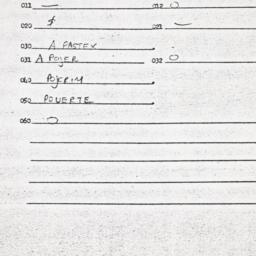 011 — 012 O
020 $ 021 —
030 A FASTEX
031 A POJER 032 O
040 POJERIM
050 POUERTE
060 O